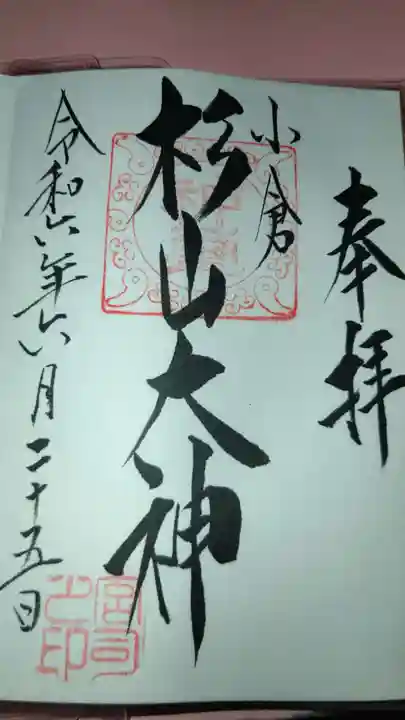 奉拝
小倉
杉山大神
令和六年六月二十五日
宮司之印